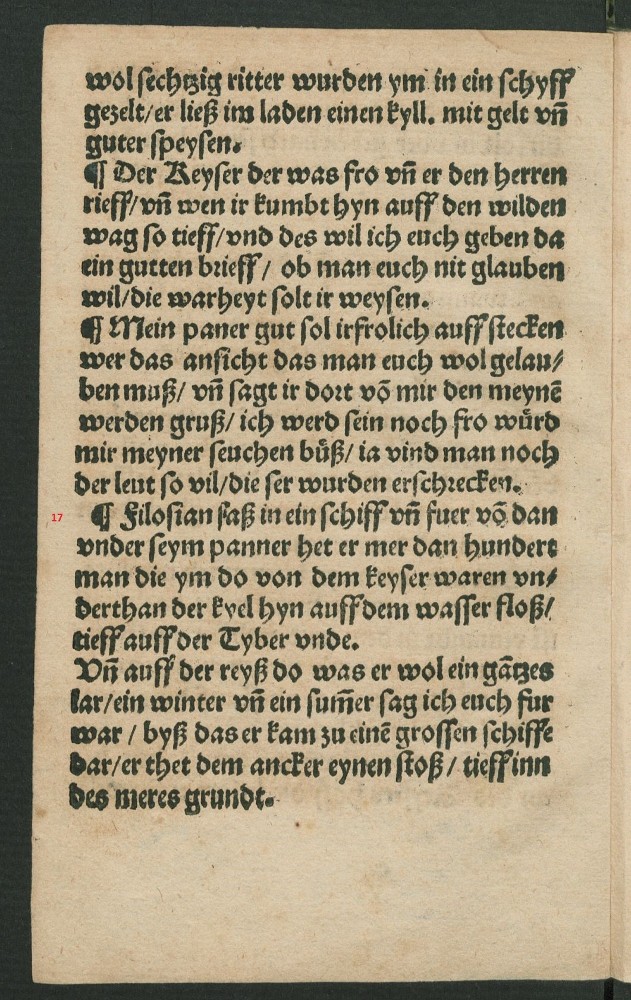 wol sechtzig ritter wurden ym in ein schyff
gezelt/er ließ im laden einen kyll. mit gelt vñ
guter speysen.
¶ Der Keyser der was fro vñ er den herren
rieff/vñ wen ir kumbt hyn auff den wilden
wag so tieff/vnd des wil ich euch geben da
ein gutten brieff / ob man euch nit glauben
wil/die warheyt solt ir weysen.
¶ Mein paner gut sol irfrolich auff stecken
wer das ansicht das man euch wol gelau/
ben muß/ vñ sagt ir dort võ mir den meynē
werden gruß/ ich werd sein noch fro würd
mir meyner seuchen büß/ ia vind man noch
der leut so vil/die ser wurden erschrecken.
17 ¶ Filosian saß in ein schiff vñ fuer võ dan
vnder seym panner het er mer dan hundert
man die ym do von dem keyser waren vn/
derthan der kyel hyn auff dem wasser floß/
tieff auff der Tyber vnde.
Vñ auff der reyß do was er wol ein gātzes
Iar/ein winter vñ ein sum̄er sag ich euch fur
war / byß das er kam zu einē grossen schiffe
dar/er thet dem ancker eynen stoß / tieff inn
des meres grundt.